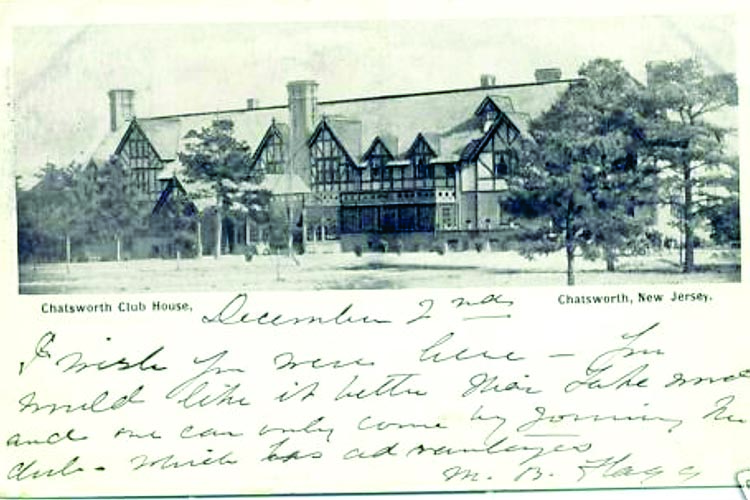 Chatsworth Club House,
Chatsworth, New Jersey.
December 2nd
I wish you were here – you
would like it better than Lake wood
and one can only come by Joining the
club – which has advantages
M. B. Flagg